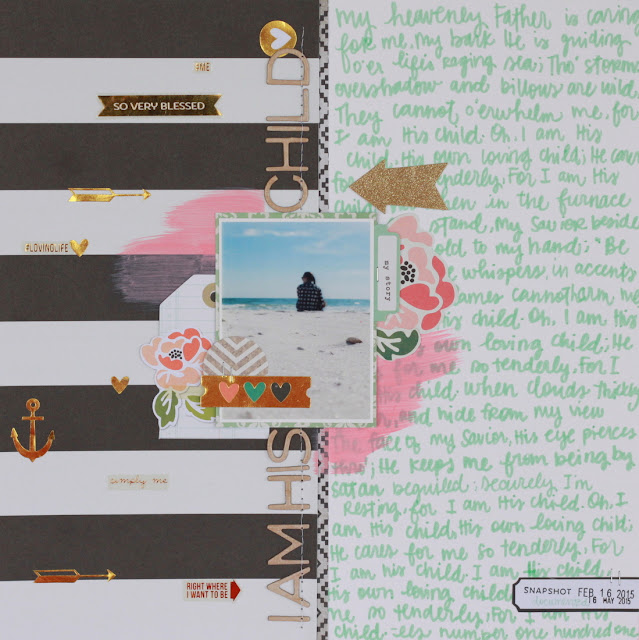 #ME
SO VERY BLESSED
#LOVINGLIFE
simply me
RIGHT WHERE
I WANT TO BE
I AM HIS CHILD
my story
My heavenly Father is caring
for me, My bark He is guiding
o'er life's raging sea; Tho' storms
overshadow and billows are wild,
They cannot o'erwhelm me, for
I am His child. Oh, I am His
child, His own loving child; He cares
tenderly, For I am His
in the furnace
stand, My Savior beside
old to my hand; "Be
whispers, in accents
cannot harm
His child. Oh, I am His
own loving child; He
for me so tenderly, For I
His child. When clouds thickly
and hide from my view
The face of my Savior, His eye pierces
thro'; He keeps me from being by
Satan beguiled; Securely I'm
Resting, for I am His child. Oh, I
am His child, His own loving child;
He cares for me so tenderly, For
I am His child. I am His child,
His own loving child
me so tenderly, For I am His
child
SNAPSHOT FEB 16 2015
6 MAY 2015